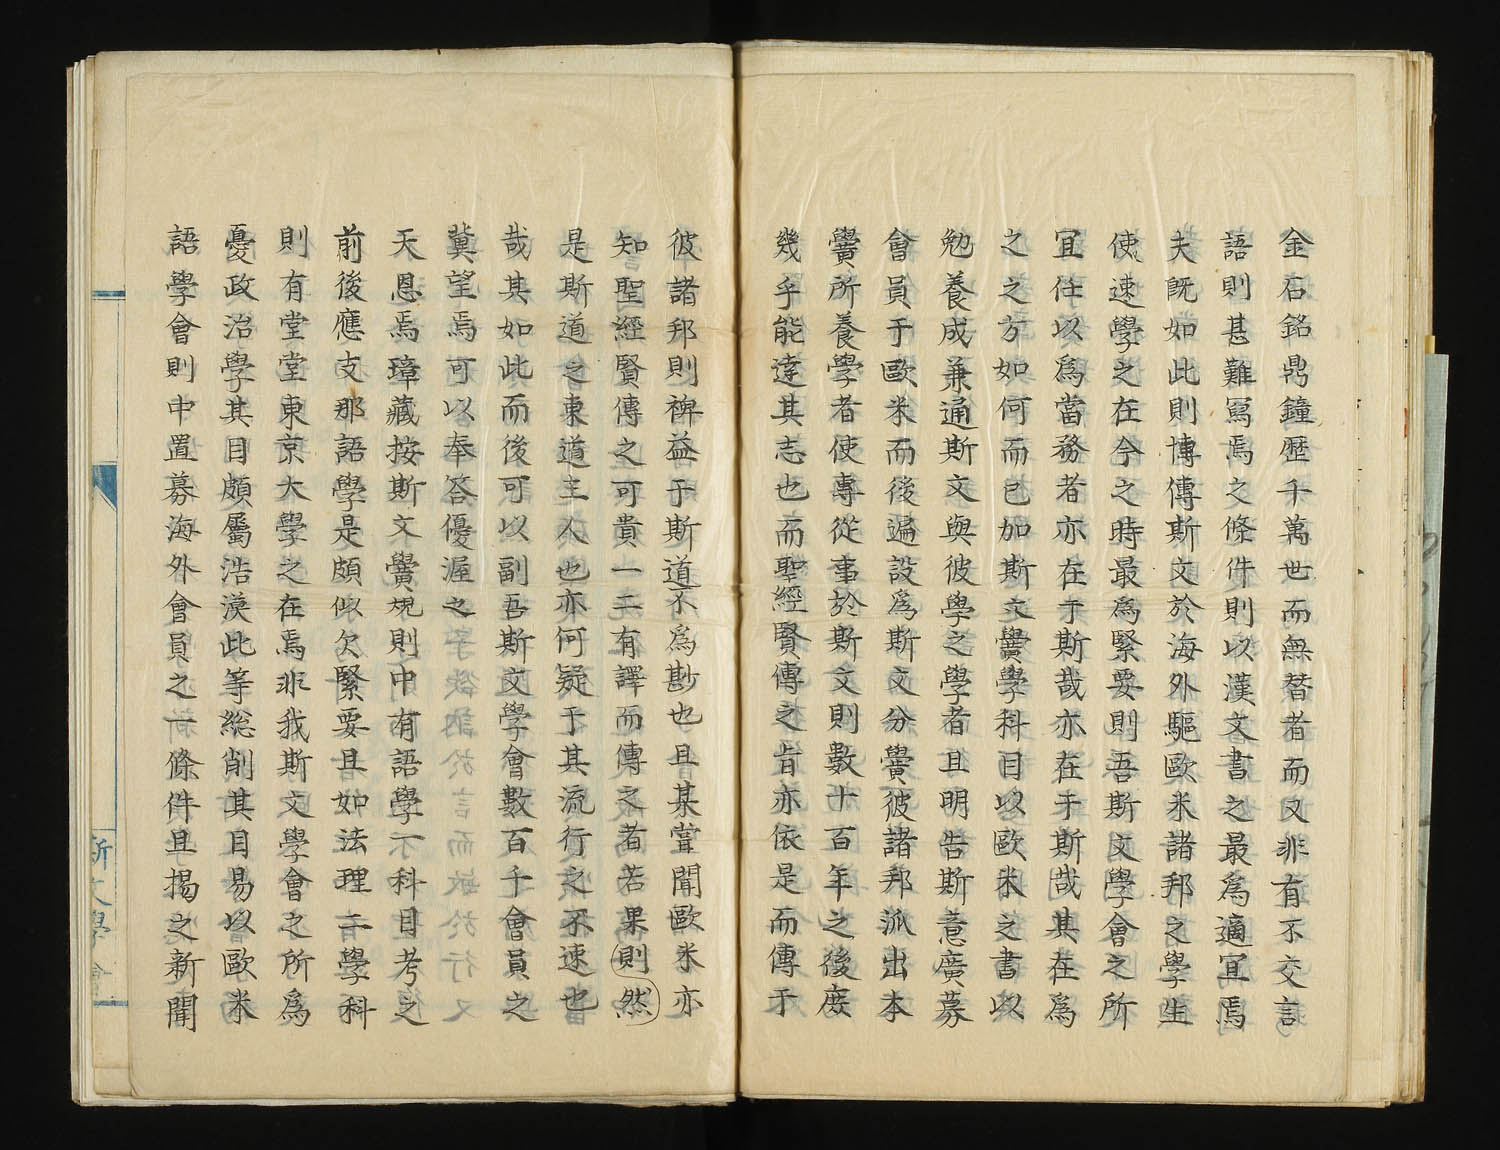 金石銘鼎鐘歴千萬世而無替者而又非有不交言
語則甚難冩焉之條件則以漢文書之最為適宜焉
夫既如此則博傳斯文於海外驅歐米諸邦之學生
使速學之在今之時最為緊要則吾斯文學會之所
宜任以為當務者亦在于斯哉亦在于斯哉其在為
之之方如何而已加斯文黌學科目以歐米之書以
勉養成兼通斯文與彼學之學者且明告斯意廣募
會員于歐米而後遍設為斯文分黌彼諸邦派出本
黌所養學者使專從事於斯文則數十百年之後庶
幾乎能達其志也而聖經賢傳之旨亦依是而傳于
彼諸邦則裨益于斯道不為尠也且某甞聞歐米亦
知聖經賢傳之可貴一二有譯而傳之者若果則然
是斯道之東道主人也亦何疑于其流行之不速也
哉其如此而後可以副吾斯文學會數百千會員之
冀望焉可以奉答優渥之
天恩焉璋藏按斯文黌規則中有語學一科目考之
前後應支那語學是頗似欠緊要且如法理二學科
則有堂堂東京大學之在焉非我斯文學會之所為
憂政治學其目頗屬浩漠此等総削其目易以歐米
語學會則中置募海外會員之一條件且揭之新聞
斯文學會